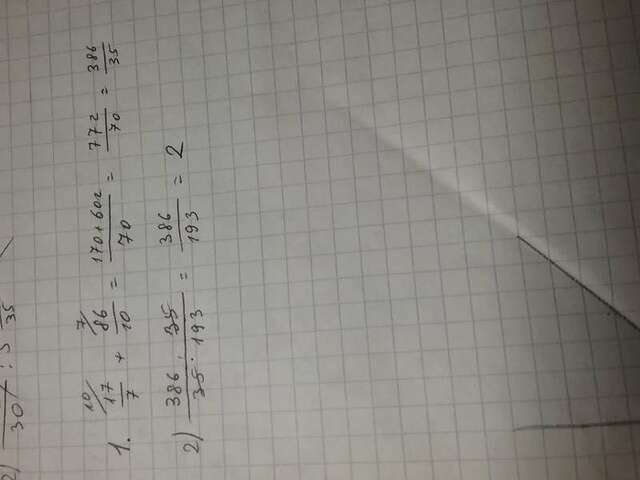 2) 30 : 5 35
1. 10/ 17/7 + 7/ 86/10 = 170+602/70 = 772/70 = 386/35
2) 386 · 35/35 · 193 = 386/193 = 2